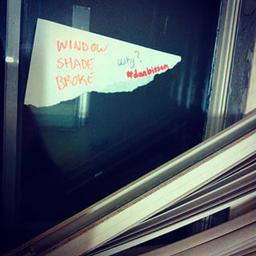 WINDOW
SHADE
BROKE
why?
#danbitson